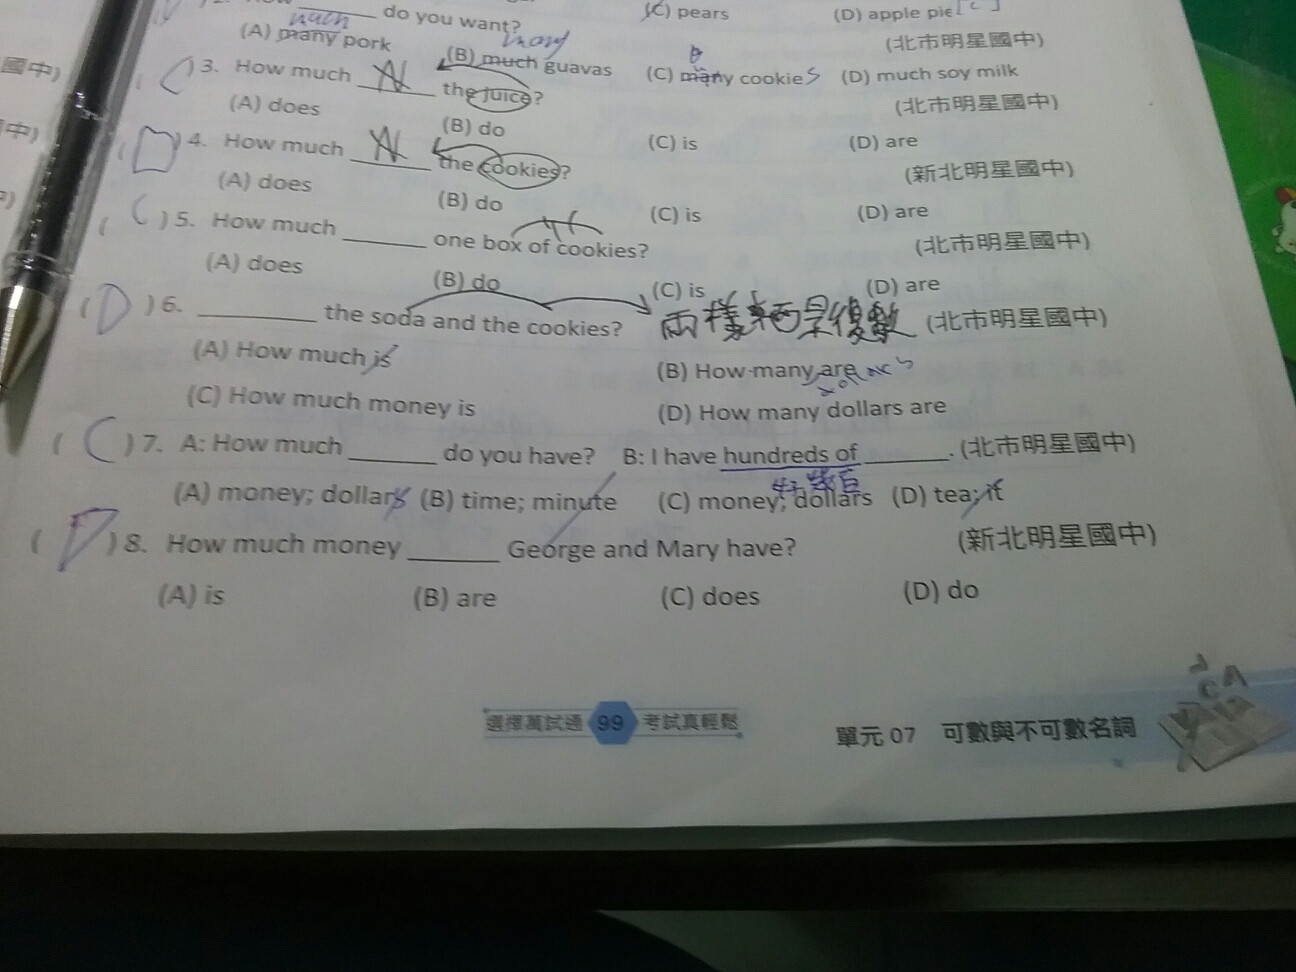 do you want?
(C) pears
(D) apple pie
much
many
(A) many pork
(B) much guavas
(C) many cookies
(D) much soy milk
(北市明星國中)
國中)
(C) 3. How much ______ the juice?
(北市明星國中)
(A) does
(B) do
(C) is
(D) are
中)
(D) 4. How much ______ the cookies?
(新北明星國中)
(A) does
(B) do
(C) is
(D) are
(C) 5. How much ______ one box of cookies?
(北市明星國中)
(A) does
(B) do
(C) is
(D) are
(D) 6. ______ the soda and the cookies?
兩樣東西是複數
(北市明星國中)
(A) How much is
(B) How many are
(C) How much money is
(D) How many dollars are
(C) 7. A: How much ______ do you have? B: I have hundreds of ______. (北市明星國中)
好幾百
(A) money; dollars (B) time; minute (C) money; dollars (D) tea; it
(D) 8. How much money ______ George and Mary have?
(新北明星國中)
(A) is
(B) are
(C) does
(D) do
選擇萬試通 99 考試真輕鬆
單元 07 可數與不可數名詞
C A